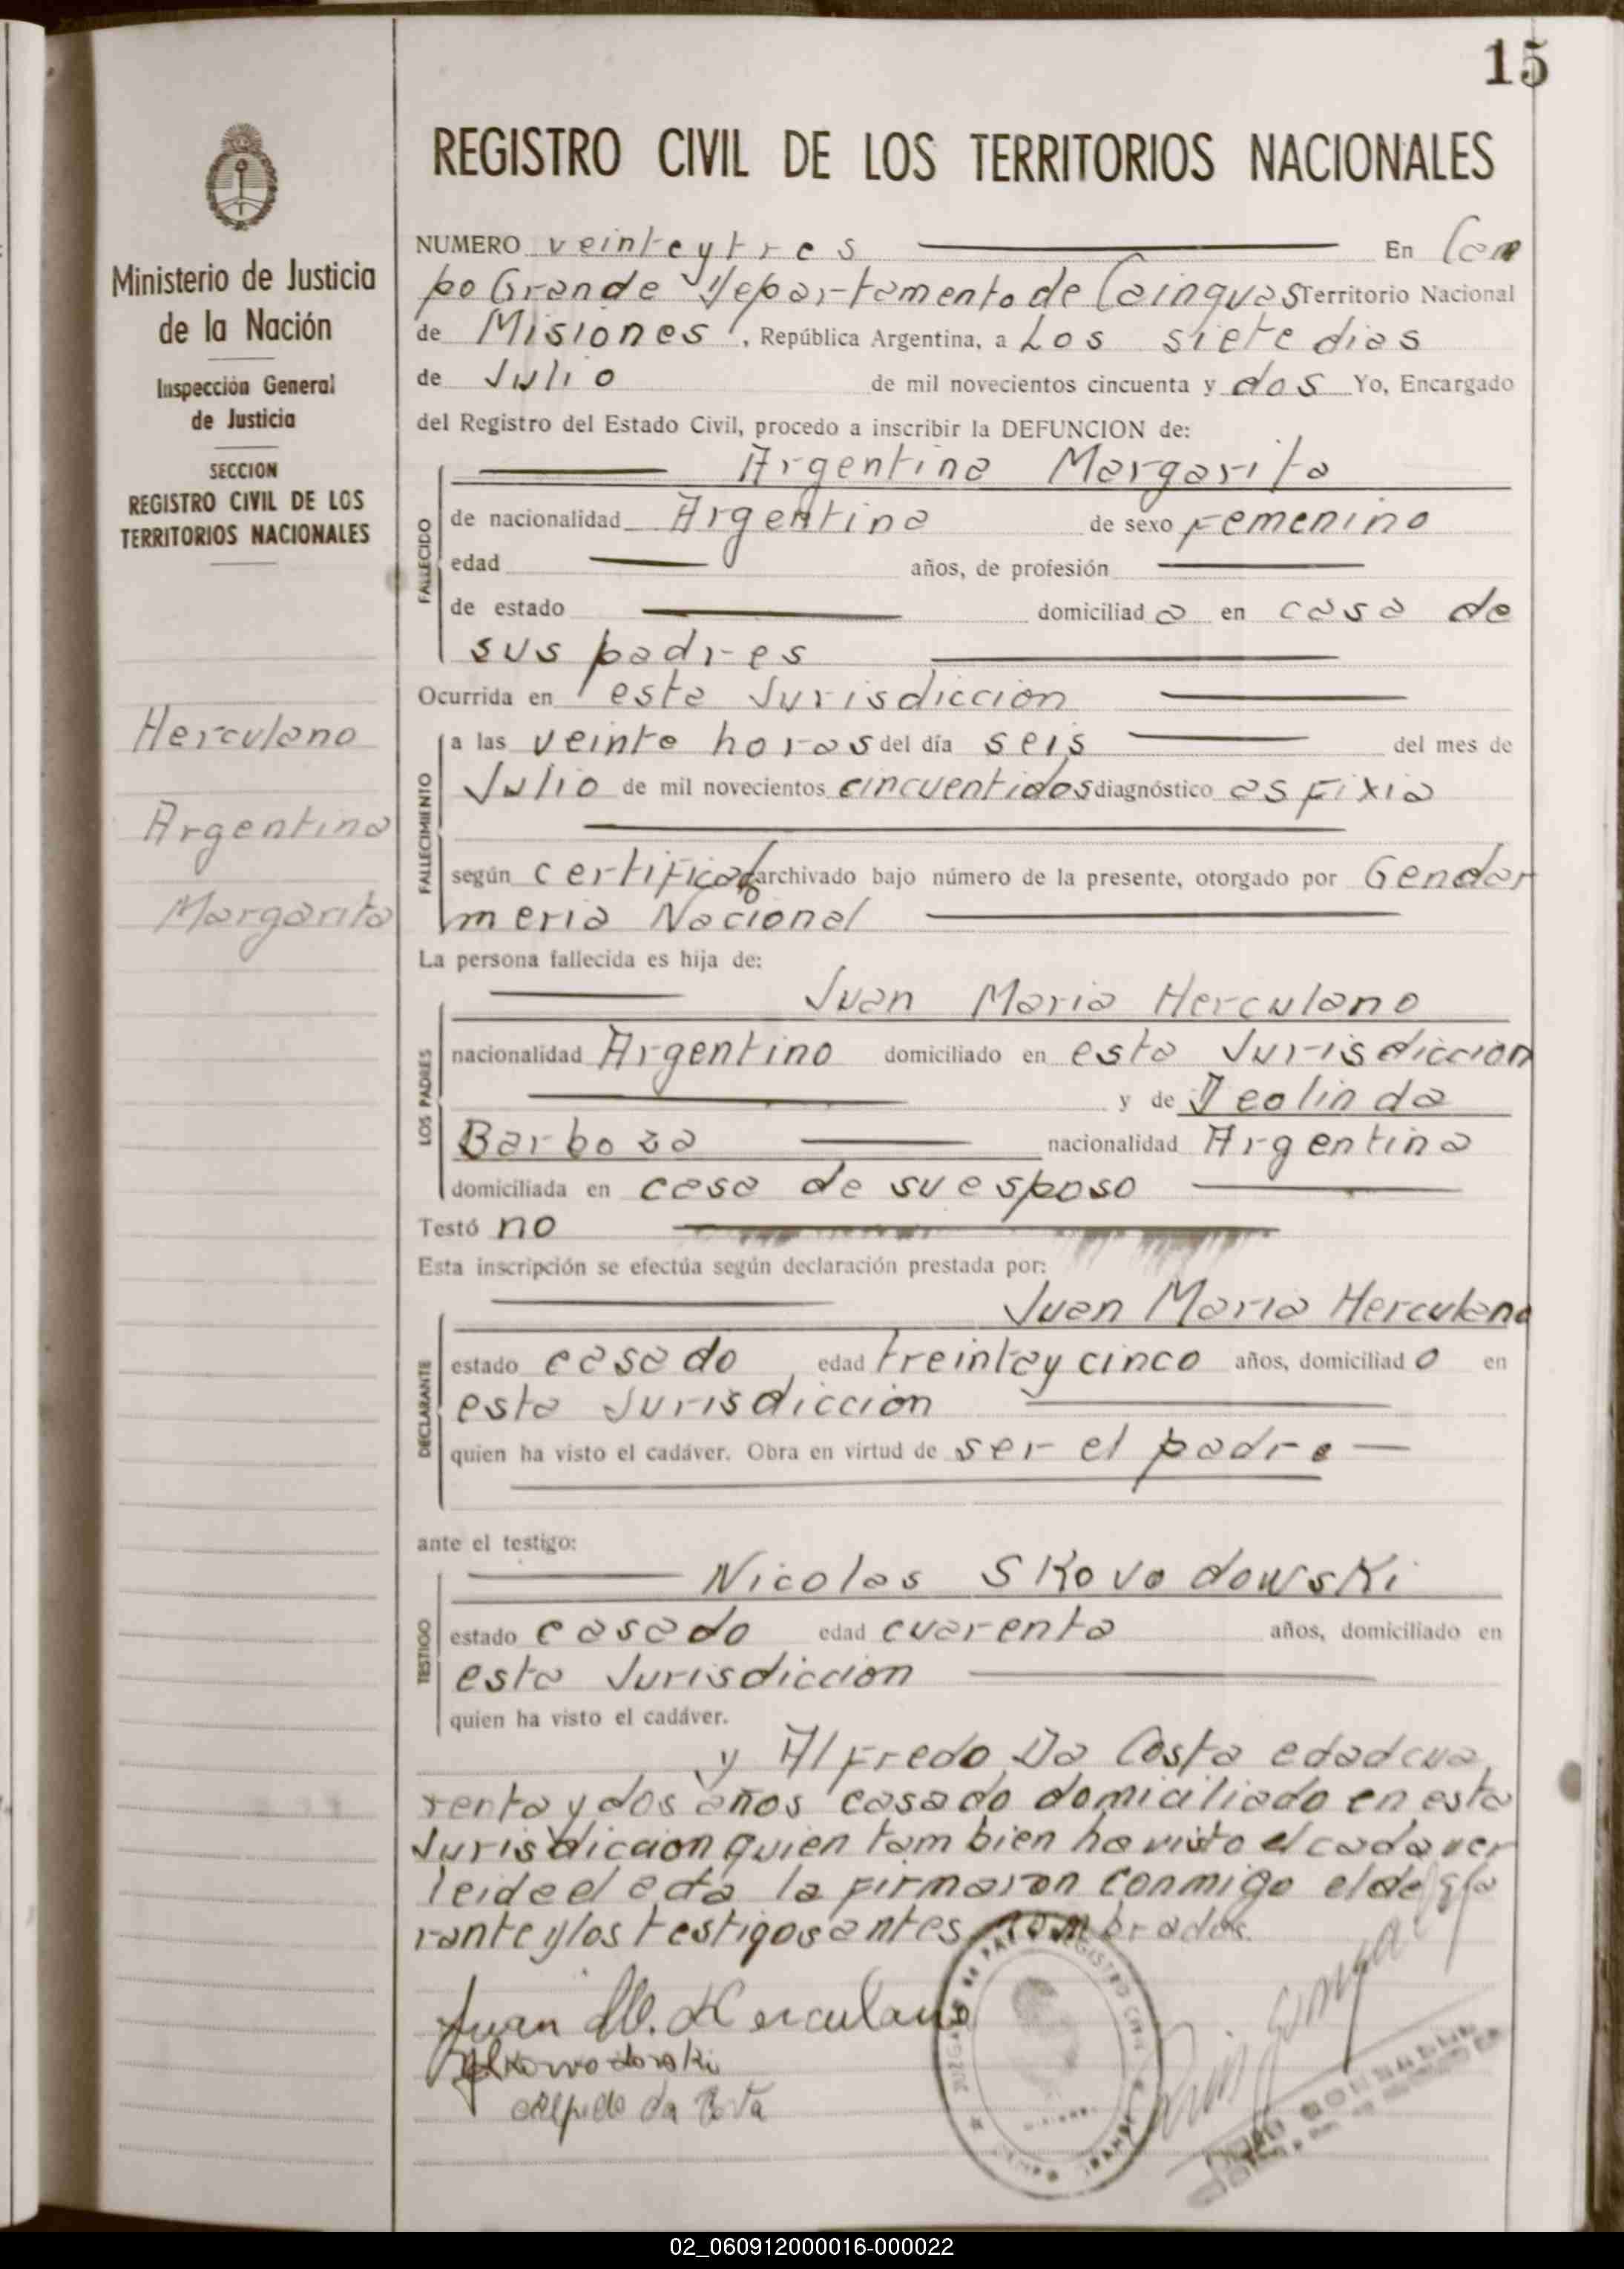 15
REGISTRO CIVIL DE LOS TERRITORIOS NACIONALES
Ministerio de Justicia
de la Nación
Inspección General
de Justicia
SECCION
REGISTRO CIVIL DE LOS
TERRITORIOS NACIONALES
Herculano
Argentina
Margarita
NUMERO veinteytres En Cam
po Grande Departamento de Cainguas Territorio Nacional
de Misiones, República Argentina, a Los siete dias
de Julio de mil novecientos cincuenta y dos Yo, Encargado
del Registro del Estado Civil, procedo a inscribir la DEFUNCION de:
Argentina Margarita
FALLECIDO
de nacionalidad Argentina de sexo Femenino
edad años, de profesión
de estado domiciliad a en casa de
sus padres
Ocurrida en esta Jurisdiccion
FALLECIMIENTO
a las veinte horas del día seis del mes de
Julio de mil novecientos cincuentidos diagnóstico asfixia
según certificado archivado bajo número de la presente, otorgado por Gendar
meria Nacional
La persona fallecida es hija de:
LOS PADRES
Juan Maria Herculano
nacionalidad Argentino domiciliado en esta Jurisdiccion
y de Deolinda
Barboza nacionalidad Argentina
domiciliada en casa de su esposo
Testó no
Esta inscripción se efectúa según declaración prestada por:
DECLARANTE
Juan Maria Herculano
estado casado edad treintay cinco años, domiciliad o en
esta Jurisdiccion
quien ha visto el cadáver. Obra en virtud de ser el padre
ante el testigo:
TESTIGO
Nicolas SKovodowsKi
estado casado edad cuarenta años, domiciliado en
esta Jurisdiccion
quien ha visto el cadáver.
y Alfredo Da Costa edad cua
renta y dos años casado domiciliado en esta
Jurisdiccion quien tambien ha visto el cadaver
leida el acta la firmaron conmigo el decla
rante y los testigos antes nombrados.
Juan M. Herculano
JUZGADO DE PAZ Y REGISTRO CIVIL
CAMPO GRANDE
02_060912000016-000022